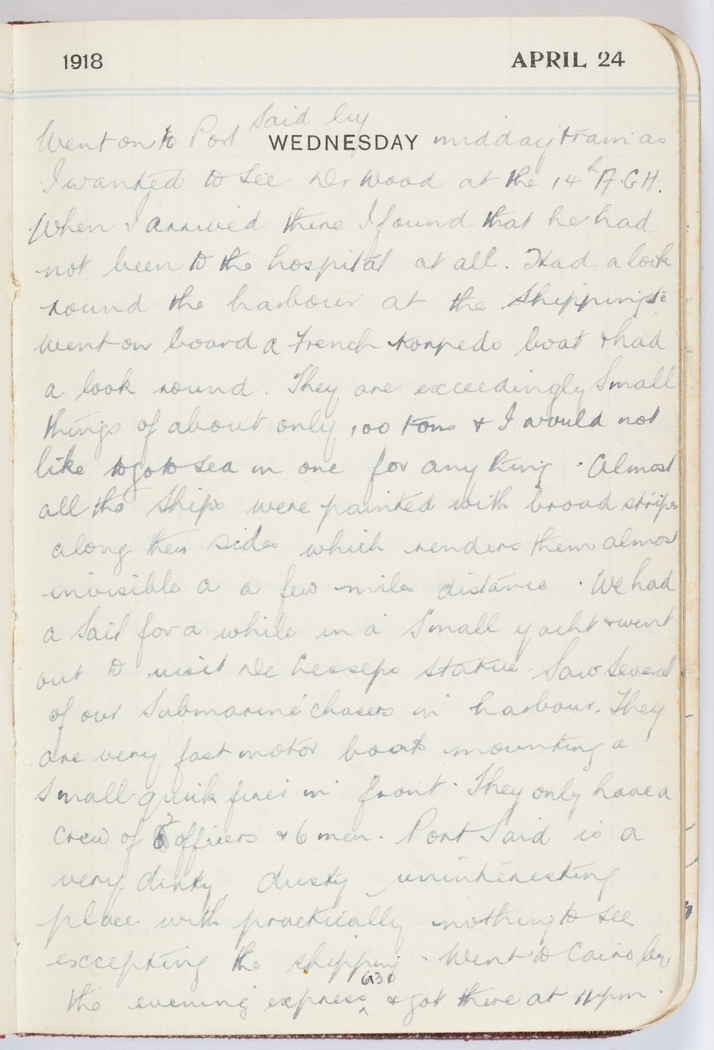 1918 APRIL 24
WEDNESDAY
Went on to Port Said by midday train as
I wanted to see Dr Wood at the 14th A.G.H.
When I arrived there I found that he had
not been to the hospital at all. Had a look
round the harbour at the shipping &
went on board a French torpedo boat & had
a look round. They are exceedingly small
things of about only 100 tons & I would not
like to go to sea in one for any thing. Almost
all the ships were painted with broad stripes
along their sides which renders them almost
invisible a a few miles distance. We had
a sail for a while in a small yacht & went
out to visit De Lesseps statue. Saw several
of our submarine chasers in harbour. They
are very fast motor boats mounting a
small quick firer in front. They only have a
crew of 2 officers & 6 men. Port Said is a
very dirty, dusty uninteresting
place with practically nothing to see
excepting the shipping. Went to Cairo by
the evening express 630 & got there at 11 pm.